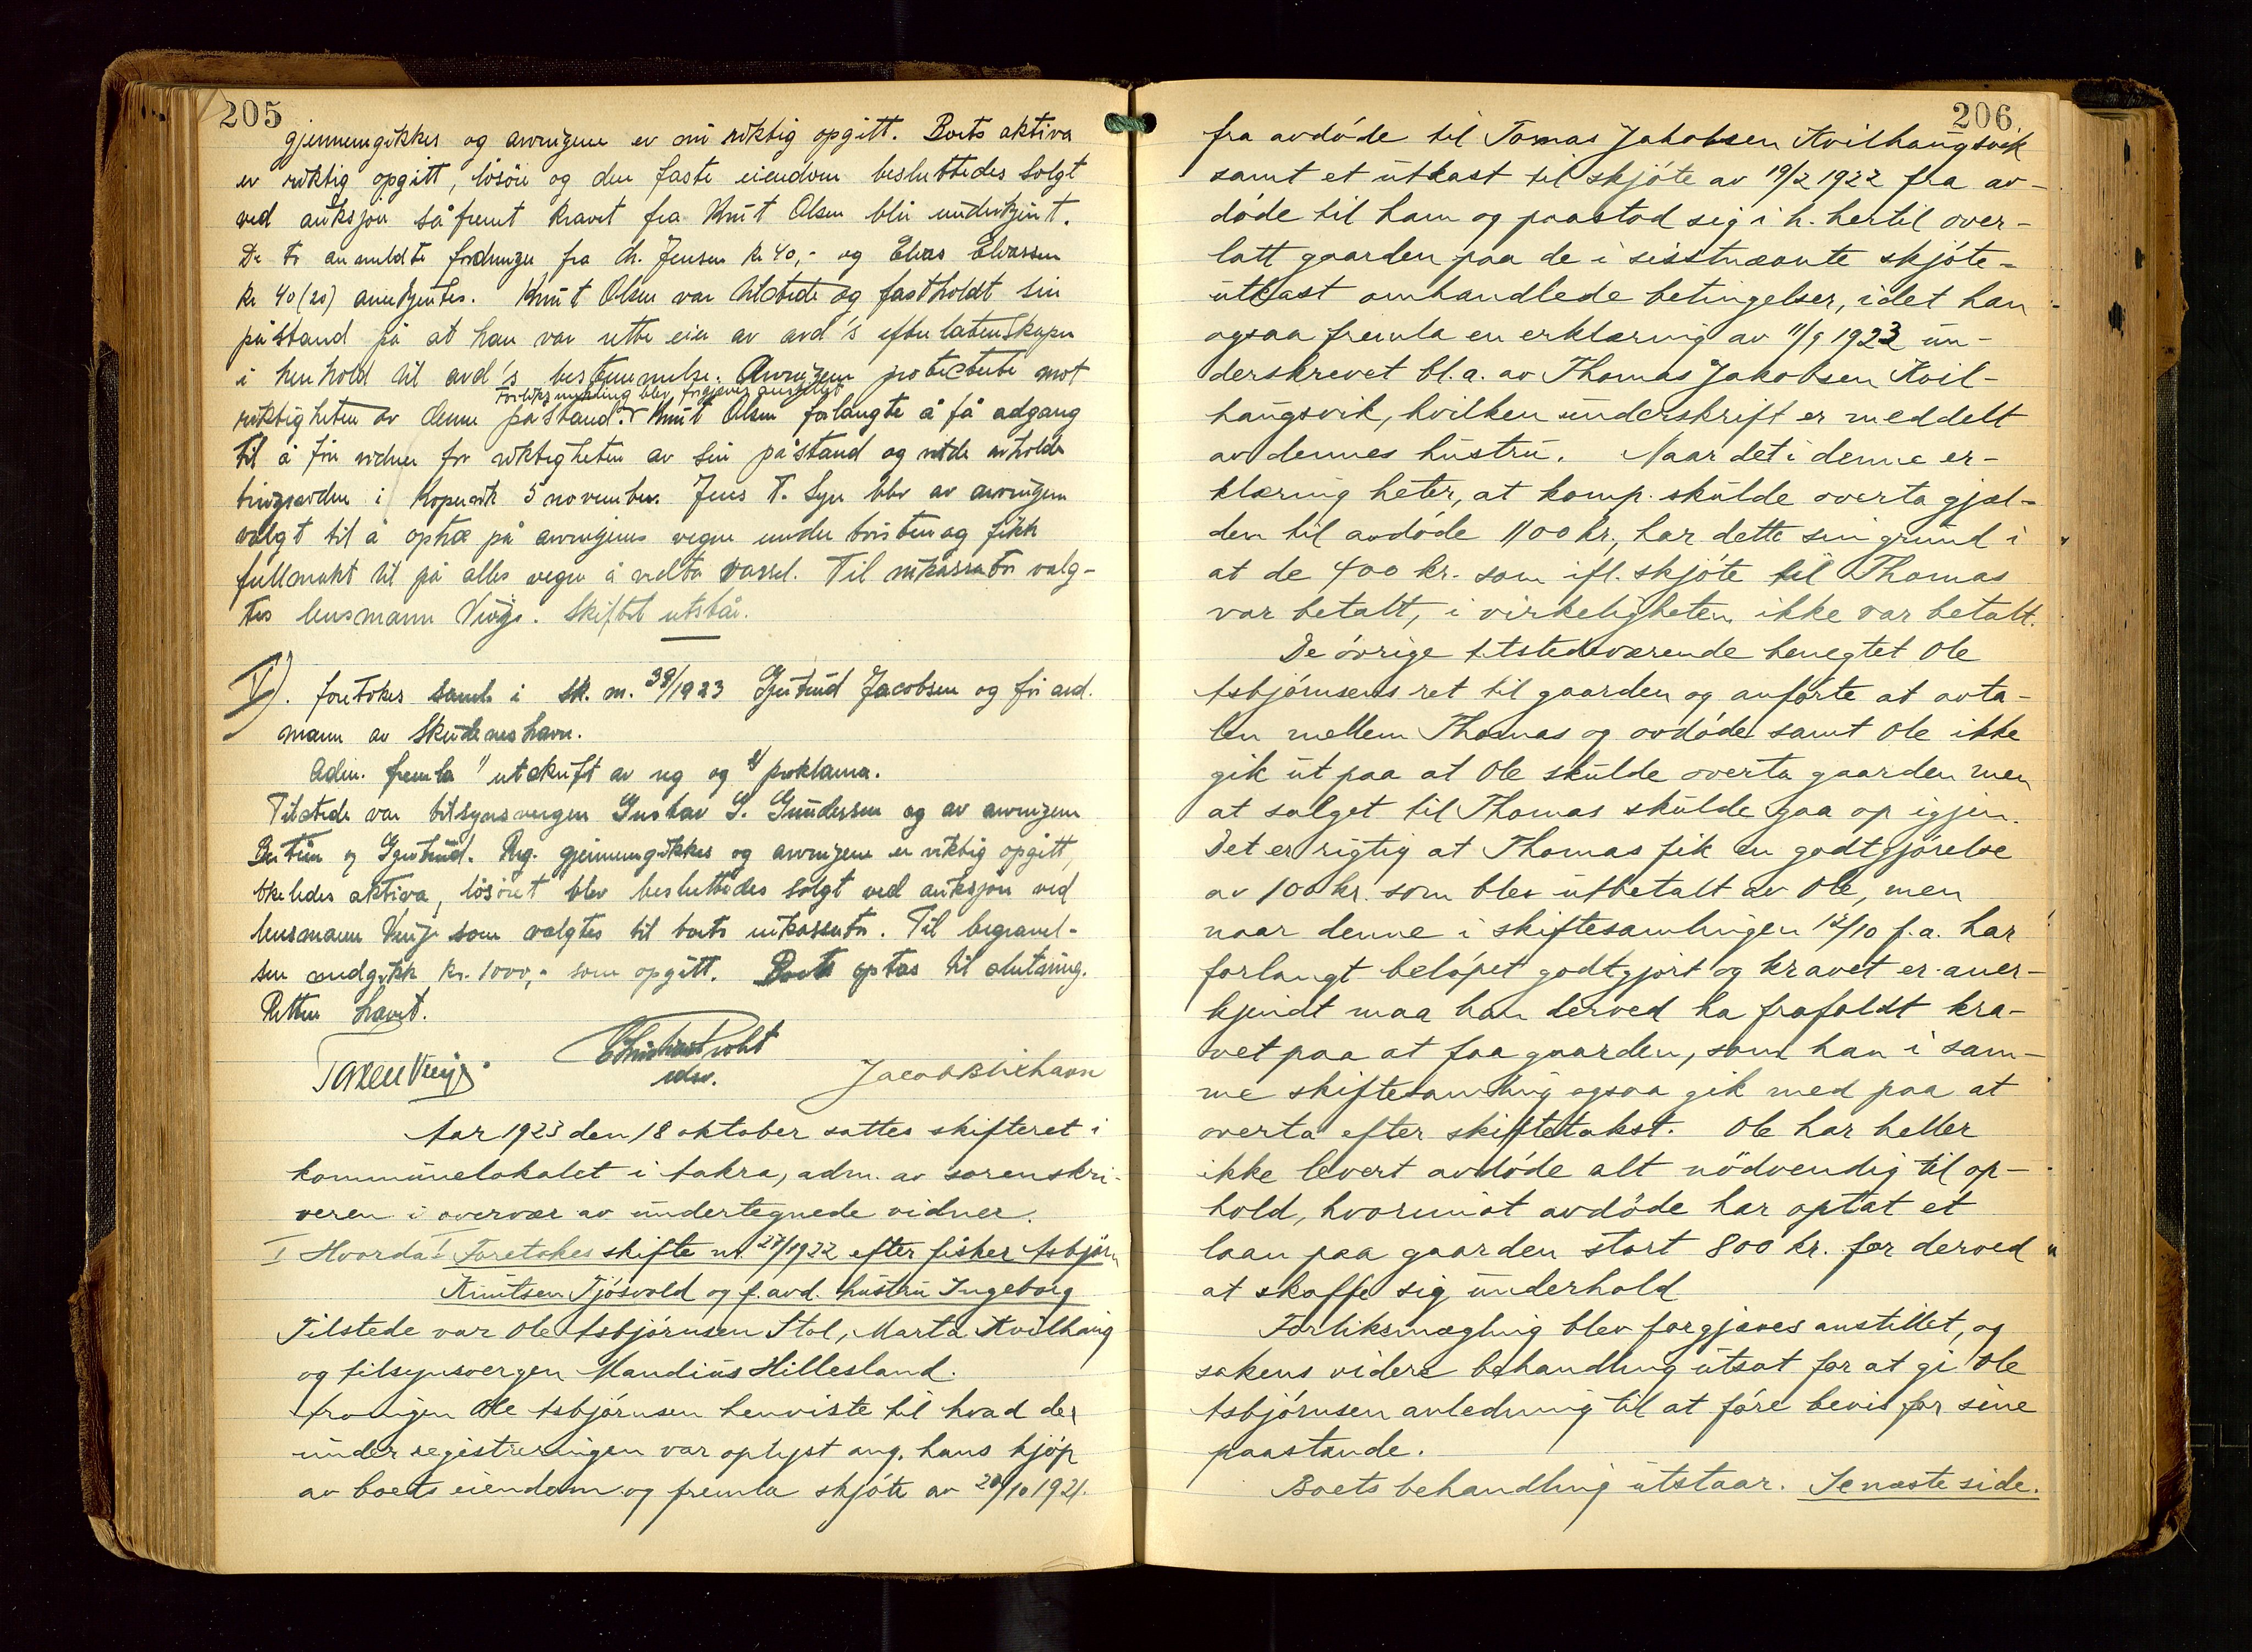 205
gjennemgikkes og arvingene er nu riktig opgitt. Boets aktiva
er riktig opgitt, lösöre og den faste eiendom besluttedes solgt
ved auksjon såfremt kravet fra Knut Olsen blir underkjent.
De to anmeldte fordringer fra Ch. Jensen kr 40,- og Elias Eliassen
kr 40 (20) anerkjentes. Knut Olsen var tilstede og fastholdt sin
påstand på at han var rette eier av avd's efterlatenskaper
i henhold til avd's bestemmelse. Arvingene protesterte mot
Forliksmekling blev forgjeves anstillet
riktigheten av denne påstand. Knut Olsen forlangte å få adgang
til å före vidner for riktigheten av sin påstand og vilde avholde
bevisförsel i Kopervik 5 november. Jens T. Syre blev av arvingene
valgt til å optræ på arvingenes vegne under tvisten og fikk
fullmakt til på alles vegne å vedta varsel. Til inkassator valg-
tes lensmann Vinje. Skiftet utstår.
V). foretokes saml. i sk. nr. 38/1923 Gjertrud Jacobsen og för avd.
mann av Skudeneshavn.
Adm. fremla 1) utskrift av reg og 2) proklama.
Tilstede var tilsynsvergen Gustav S. Gundersen og av arvingene
Bertin og Gjertrud. Reg. gjennemgikkes og arvingene er riktig opgitt,
likeledes aktiva, lösöret blev besluttedes solgt ved auksjon ved
lensmann Vinje som valgtes til boets inkassator. Til begravel-
sen medgikk kr. 1000,- som opgitt. Boet optas til slutning.
Retten hævet.
Torleiv Vinje
edsv.
Jacob Blikhavn
Aar 1923 den 18 oktober sattes skifteret i
kommunelokalet i Aakra, adm. av sorenskri-
veren i overvær av undertegnede vidner.
I Hvorda: Foretokes skifte nr 27/1922 efter fisker Asbjörn
Knutsen Tjösvold og f. avd. hustru Ingeborg
Tilstede var Ole Asbjörnsen Stol, Marta Kvilhaug
og tilsynsvergen Mandius Hillesland.
Arvingen Ole Asbjörnsen henviste til hvad der
under registreringen var oplyst ang. hans kjöp
av boets eiendom og fremla skjöte av 20/10 1921.
206
fra avdöde til Tomas Jakobsen Kvilhaugsvik
samt et utkast til skjöte av 19/2 1922 fra av-
döde til ham og paastod sig i h. hertil over-
latt gaarden paa de i sisstnævnte skjöte-
utkast omhandlede betingelser, idet han
ogsaa fremla en erklæring av 11/9 1923 un-
derskrevet bl.a. av Thomas Jakobsen Kvil-
haugsvik, hvilken underskrift er meddelt
av dennes hustru. Naar det i denne er-
klæring heter, at komp. skulde overta gjæl-
den til avdöde 1100 kr., har dette sin grund i
at de 400 kr. som ifl. skjöte til Thomas
var betalt, i virkeligheten ikke var betalt.
De övrige tilstedeværende benegtet Ole
Asbjörnsens ret til gaarden og anförte at avta-
len mellem Thomas og avdöde samt Ole ikke
gik ut paa at Ole skulde overta gaarden men
at salget til Thomas skulde gaa op igjen.
Det er rigtig at Thomas fik en godtgjörelse
av 100 kr. som blev utbetalt av Ole, men
naar denne i skiftesamlingen 12/10 f.a. har
forlangt belöpet godtgjort og kravet er aner-
kjendt maa han derved ha frafaldt kra-
vet paa at faa gaarden, som han i sam-
me skiftesamling ogsaa gik med paa at
overta efter skiftetakst. Ole har heller
ikke levert avdöde alt nödvendig til op-
hold, hvorimot avdöde har optat et
laan paa gaarden stort 800 kr. for derved
at skaffe sig underhold
Forliksmægling blev forgjæves anstillet, og
sakens videre behandling utsat for at gi Ole
Asbjörnsen anledning til at före bevis for sine
paastande.
Boets behandling utstaar. Se næste side.